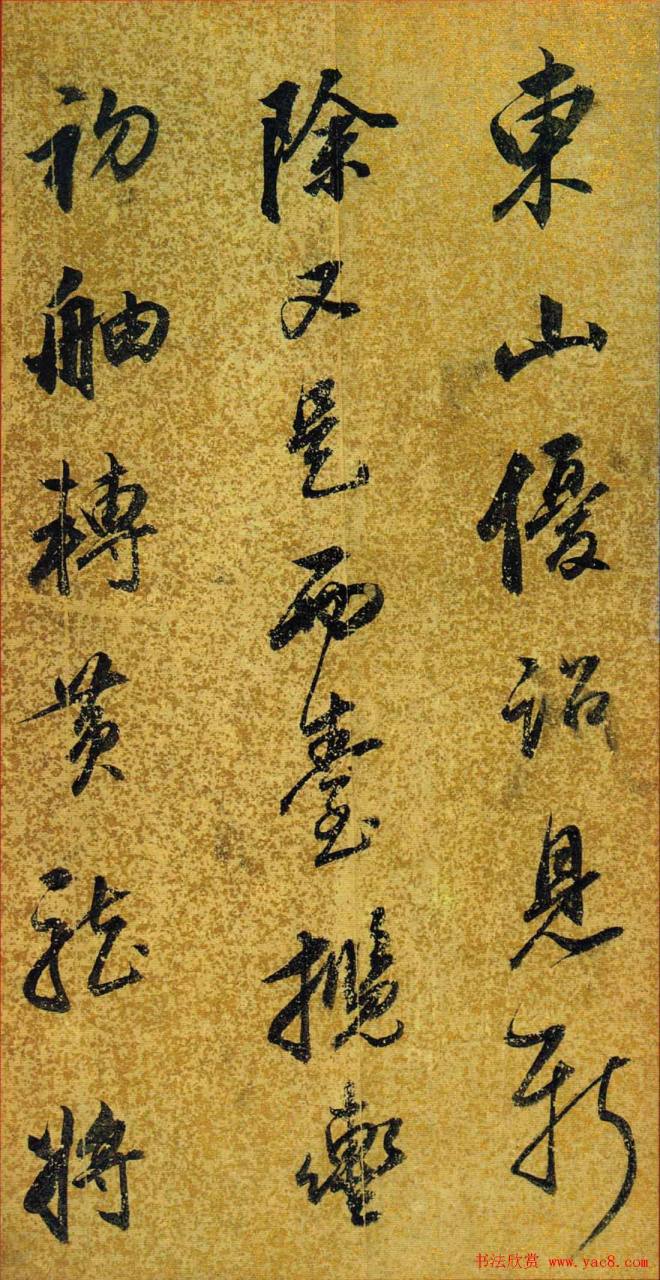 東山優詔見新
除又是西臺攬轡
初舳轉黃龍將
书法欣赏 www.yac8.com